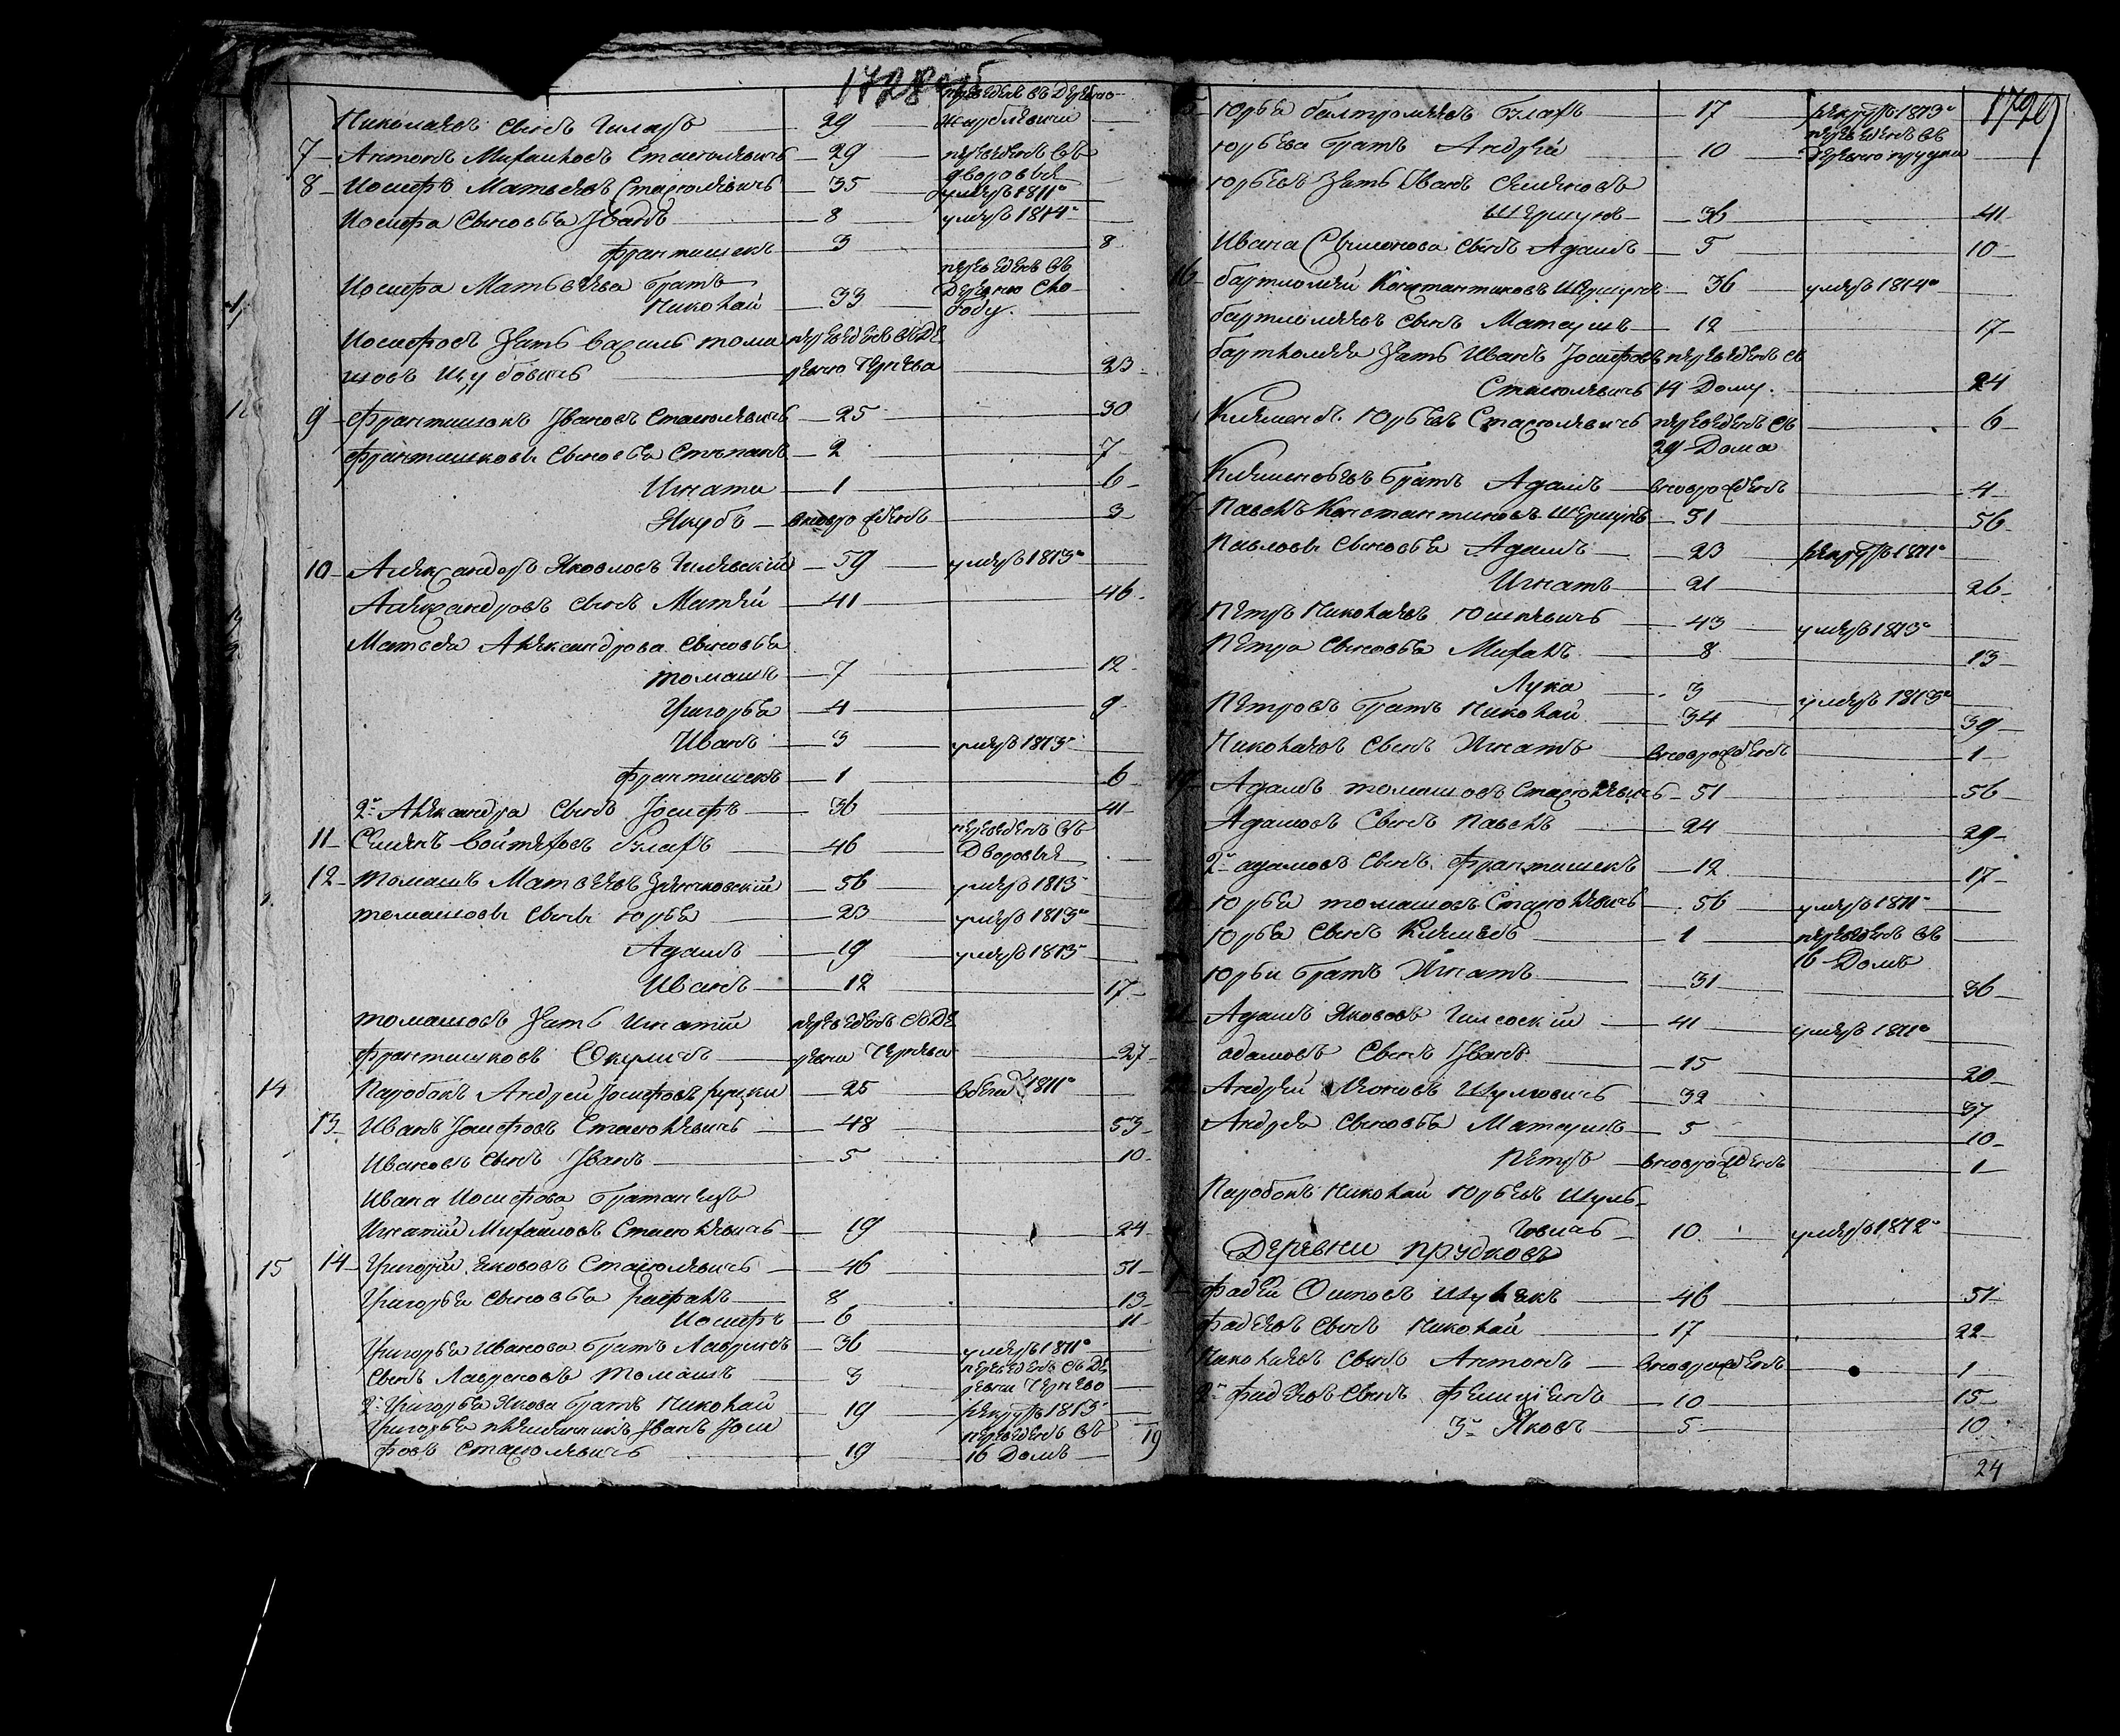 1728 об
Николаевъ сынъ Гиларъ — 29 — переведенъ въ деревню Жирблевичи
7 — Антонъ Михайловъ Стасюлевичъ — 29 — переведенъ въ
дворовыя
8 — Иосифъ Матвеевъ Стасюлевичъ — 35 — умеръ 1811го
Иосифа сыновья Иванъ — 8 — умеръ 1814го
Франтишекъ — 3 — 8
Иосифа Матвеева братъ
Николай — 33 — переведенъ въ деревню Слободу
Иосифовъ зять Василь Тома
шовъ Шубовичъ — переведенъ въ деревню Чернева — 23
9 — Франтишокъ Ивановъ Стасюлевичъ — 25 — 30
Франтишковы сыновья Степанъ — 2 — 7
Игнати — 1 — 6
Якубъ — вновро жденъ — 3
10 — Александеръ Яковловъ Гилевский — 59 — умеръ 1813го
Александровъ сынъ Матей — 41 — 46
Матвея Александрова сыновья
Томашъ — 7 — 12
Григорья — 4 — 9
Иванъ — 3 — умеръ 1813го
Франтишекъ — 1 — 6
2й Александра сынъ Иосифъ — 36 — 41
11 — Семенъ Войтеховъ Блахъ — 46 — переведенъ въ
дворовыя
12 — Томашъ Матвеевъ — 56 — умеръ 1813
Томашовы сыны Юрья — 23 — умеръ 1813го
Адамъ — 19 — умеръ 1813
Иванъ — 12 — 17
Томашовъ зять Игнатий — переведенъ въ де
Франтишковъ Окуличъ — ревни Чернева — 27
14
Паробокъ Андрей Иосифовъ — 25 — в бегах 1811го
13 — Иванъ Иосифовъ Стасюлевичъ — 48 — 53
Ивановъ сынъ Иванъ — 5 — 10
Ивана Иосифова братанецъ
Игнатий Михайловъ Стасюлевичъ — 19 — 24
15 14 — Григорий Якововъ Стасюлевичъ — 46 — 51
Григорья сыновья Рафалъ — 8 — 13
Иосифъ — 6 — 11
Григорья Иванова братъ Лаврынъ — 36 — умеръ 1811го
Сынъ Лавреновъ Томашъ — 3 — переведенъ въ деревни Чернево
2й Григорья Якова братъ Николай — 19 — рекрутъ 1813
Григорья племянникъ Иванъ Иоси
фовъ Стасюлевичъ — 19 — переведенъ въ 16 домъ
19
1729
Юрья Балтромеевъ Блахъ — 17 — рекрутъ 1813го
Юрьева братъ Андрей — 10 — переведенъ въ деревню
Юрьевъ зять Иванъ Семеновъ
Шершунъ — 36 — 41
Ивана Семенова сынъ Адамъ — 5 — 10
16 Бартломей Константиновъ Шершунъ — 36 — умеръ 1814го
Бартломеевъ сынъ Матеушъ — 12 — 17
Бартломея зять Иванъ Иосифовъ — переведенъ съ
Стасюлевичъ 14 дому — 24
Клеменсъ Юрьевъ Стасюлевичъ — переведенъ съ — 6
29 дома
Клеменсовъ братъ Адамъ — вноврожденъ — 4
Павелъ Константиновъ Шершунъ — 51 — 56
Павловы сыновья Адамъ — 23 — рекрутъ 1811го
Игнатъ — 21 — 26
Петръ Николаевъ Юшкевичъ — 43 — умеръ 1813го
Петра сыновья Михалъ — 8 — 13
Лука — 3 — умеръ 1813го
Петровъ братъ Николай — 34 — 39
Николаевъ сынъ Игнатъ — вноврожденъ — 1
Адамъ Томашовъ Стасюлевичъ — 51 — 56
Адамовъ сынъ Павелъ — 24 — 29
2й Адамовъ сынъ Франтишекъ — 12 — 17
Юрья Томашовъ Стасюлевичъ — 56 — умеръ 1811го
Юрья сынъ Клеменсъ — 1 — переведенъ въ
16 домъ
Юрьи братъ Игнатъ — 31 — 36
Адамъ Якововъ — 41 — умеръ 1811го
Адамовъ сынъ Иванъ — 15 — 20
Андрей Леоновъ Шулмовичъ — 32 — 37
Андрея сыновья Матеушъ — 5 — 10
Петръ — вноврожденъ — 1
Паробокъ Николай Юрьевъ Шуль
говичъ — 10 — умеръ 1812го
Деревни Прудковъ
Фадей Осиповъ — 46 — 51
Фадеевъ сынъ Николай — 17 — 22
Николаевъ сынъ Антонъ — вноврожденъ — 1
2й Фадеевъ сынъ Фелициянъ — 10 — 15
3й Яковъ — 5 — 10
24